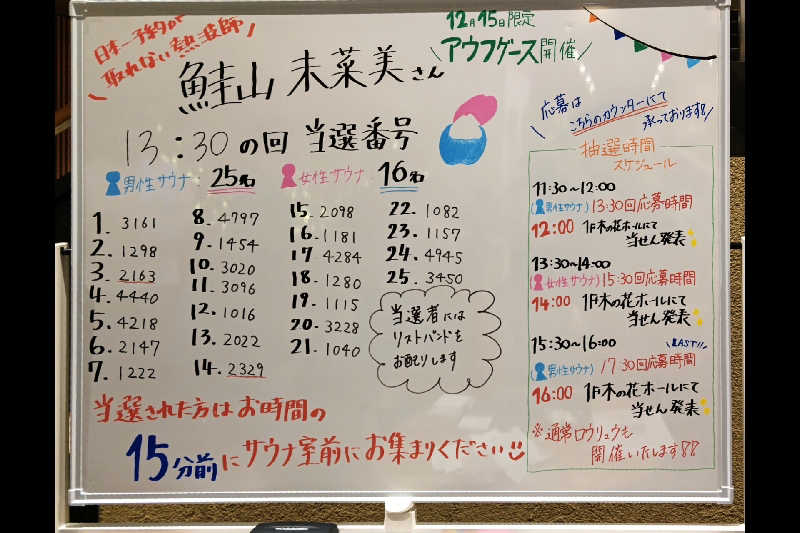 日本一予約が
取れない熱波師
鮭山未菜美さん
12月15日限定
アウフグース開催
13:30の回 当選番号
男性サウナ 25名
女性サウナ 16名
1. 3161
2. 1298
3. 2163
4. 4440
5. 4218
6. 2147
7. 1222
8. 4797
9. 1454
10. 3020
11. 3096
12. 1016
13. 2022
14. 2329
15. 2098
16. 1181
17 4284
18. 1280
19. 1115
20. 3228
21. 1040
22. 1082
23. 1157
24. 4945
25. 3450
当選者には
リストバンドを
お配りします
当選された方はお時間の
15分前にサウナ室前にお集まりください
応募は
こちらのカウンターにて
承っております!!
抽選時間
スケジュール
11:30~12:00
(男性サウナ) 13:30回応募時間
12:00 1F木の花ホールにて
当せん発表
13:30~14:00
(女性サウナ) 15:30回応募時間
14:00 1F木の花ホールにて
当せん発表
15:30~16:00
LAST!!
(男性サウナ) 17:30回応募時間
16:00 1F木の花ホールにて
当せん発表
※通常ロウリュウも
開催いたします!!